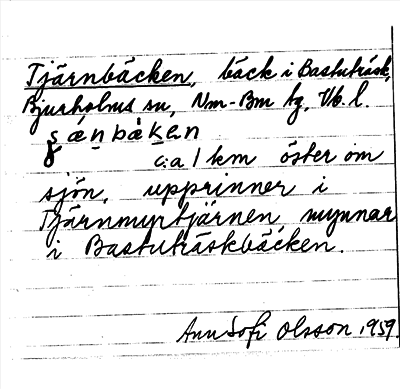 Tjärnbäcken, bäck i Bastuträsk,
Bjurholms sn, Nm-Bm tg, Vb. l.
c:a 1 km öster om
sjön, upprinner i
Tjärnmyrtjärnen, mynnar
i Bastuträskbäcken.
Ann Sofi Olsson 1959.